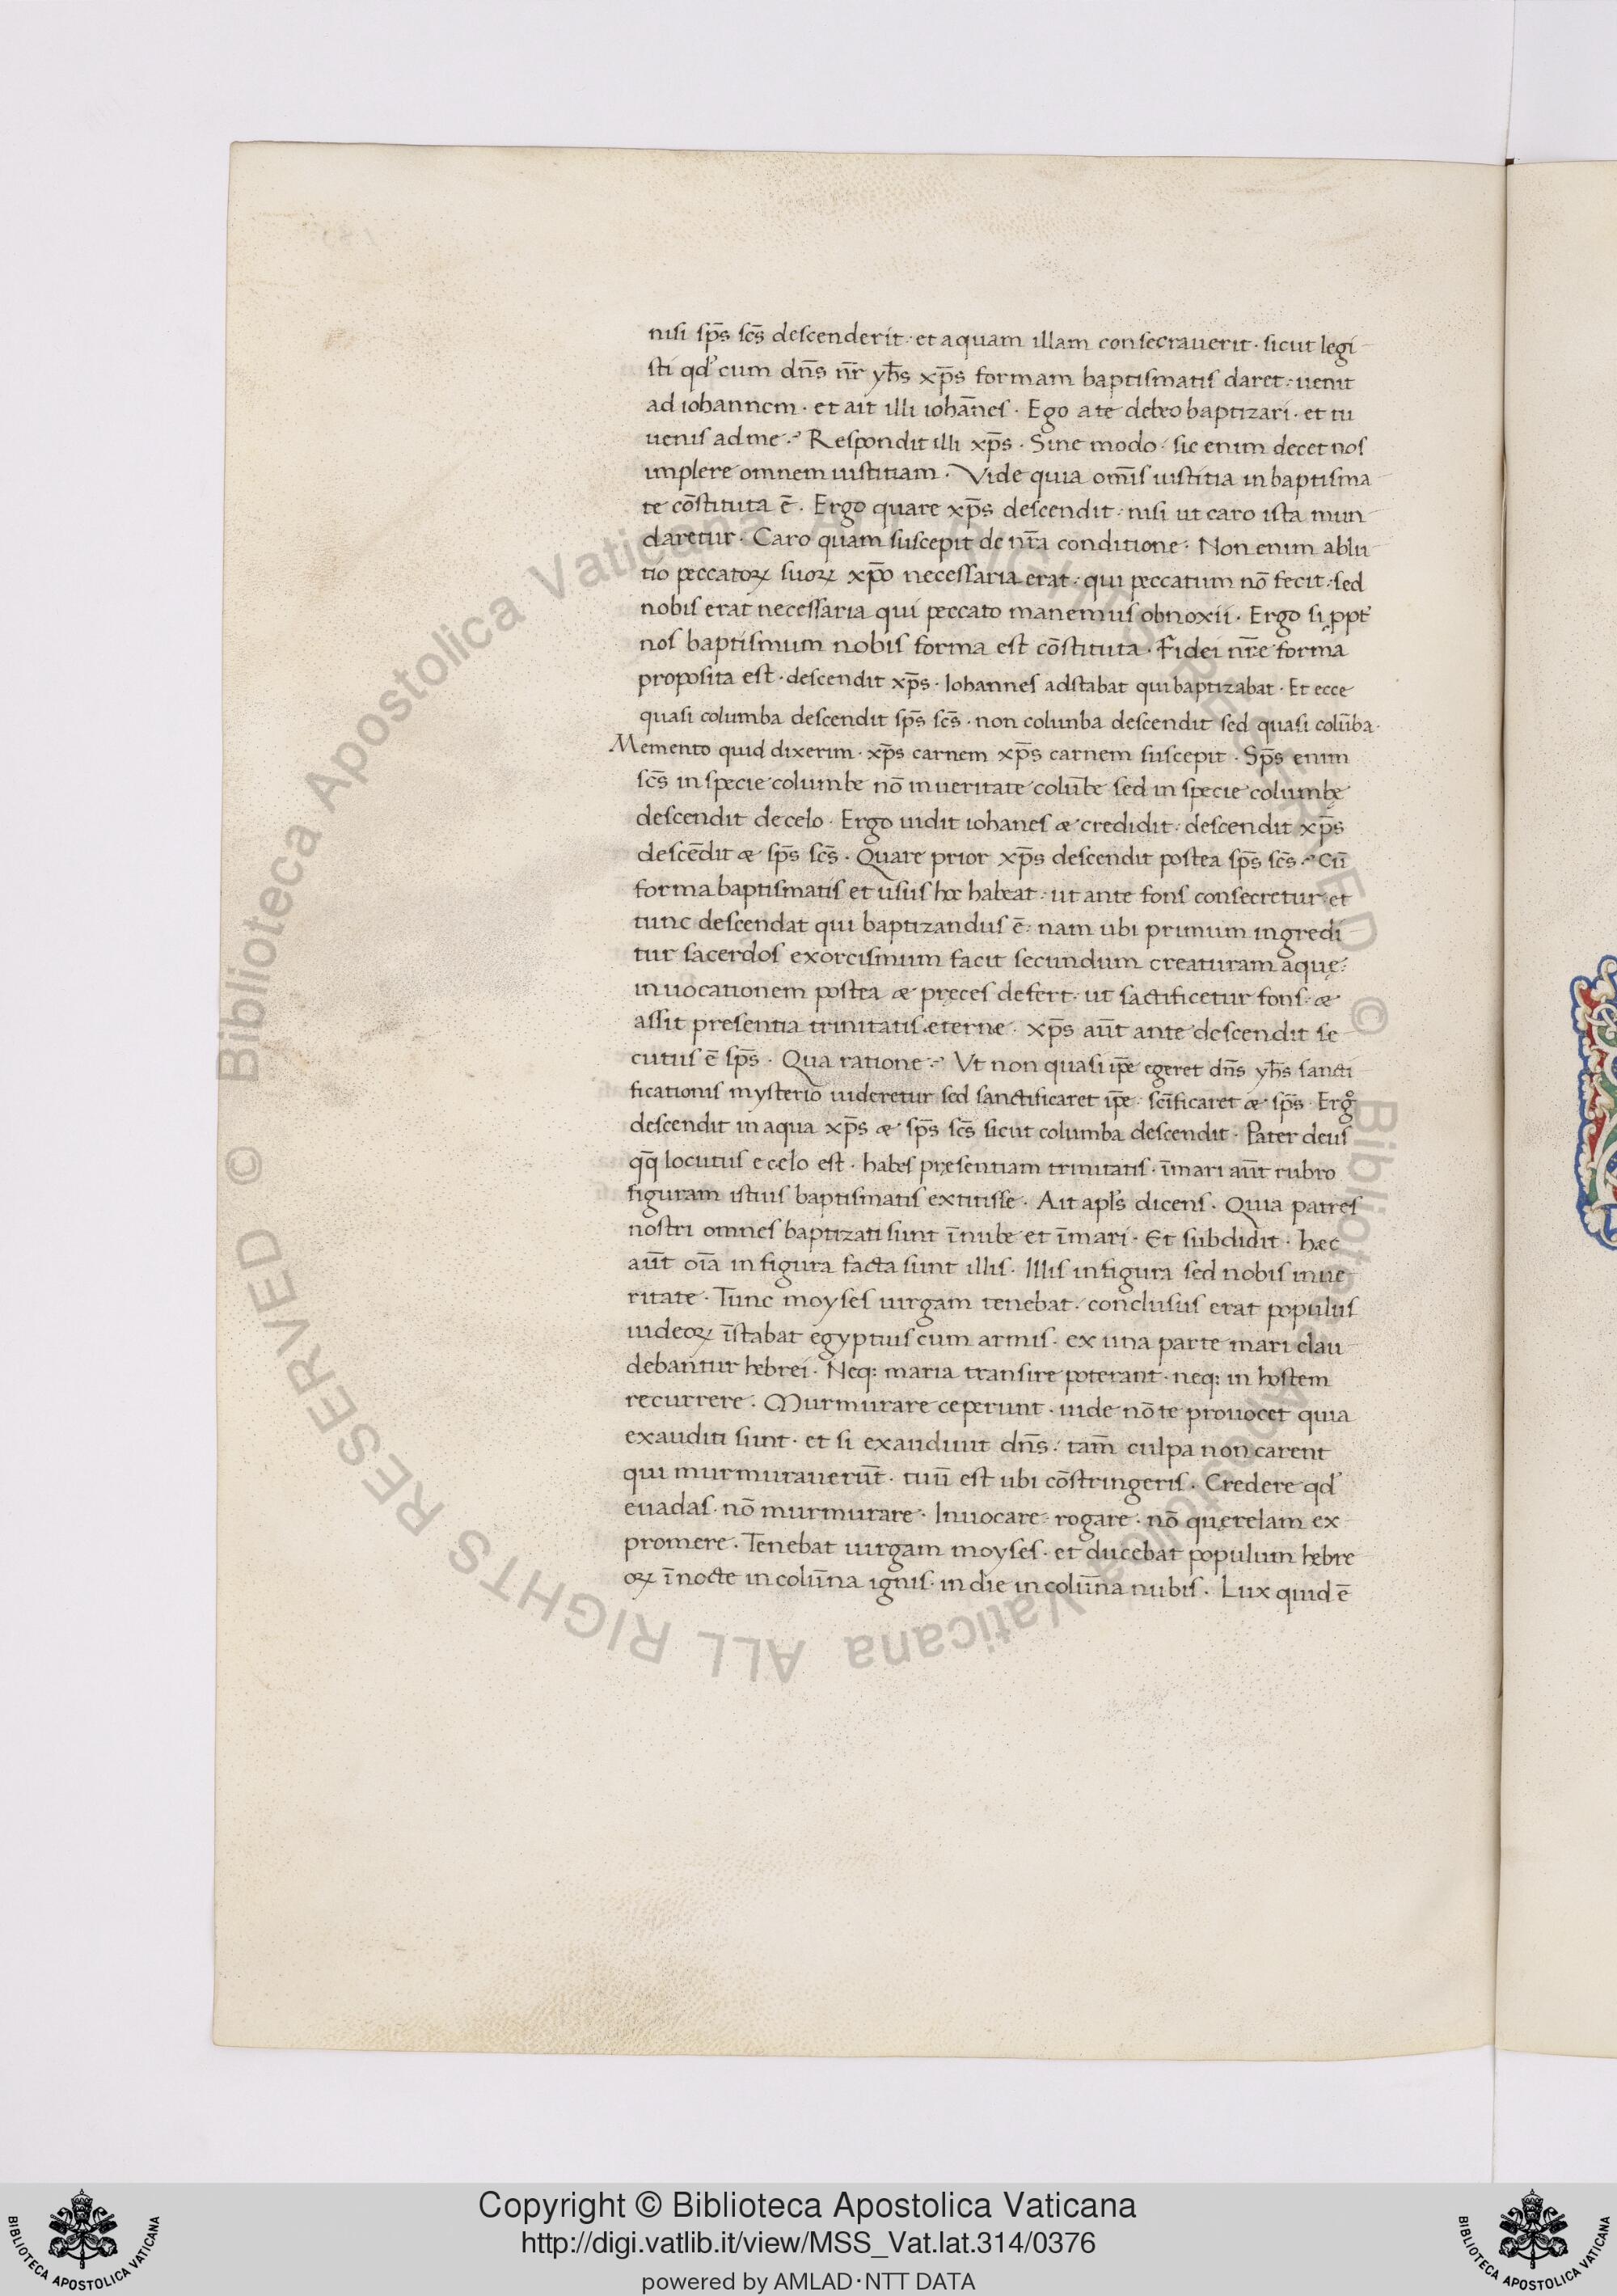 nisi sp̄s sc̄s descenderit· et aquam illam consecrauerit· sicut legi
sti qd' cum dn̄s nr̄ yh̄s xp̄s formam baptismatis daret· uenit
ad iohannem· et ait illi iohānes· Ego a te debeo baptizari· et tu
uenis ad me·? Respondit illi xp̄s· Sine modo· sic enim decet nos
implere omnem iustitiam· Vide quia om̄is iustitia in baptisma
te cōstituta ē· Ergo quare xp̄s descendit· nisi ut caro ista mun
daretur· Caro quam suscepit de nr̄a conditione· Non enim ablu
tio peccatoꝝ suoꝝ xp̄o necessaria erat· qui peccatum nō fecit· sed
nobis erat necessaria qui peccato manemus obnoxii· Ergo si ppt'
nos baptismum nobis forma est cōstituta· Fidei nr̄e forma
proposita est· descendit xp̄s· Iohannes adstabat qui baptizabat· Et ecce
quasi columba descendit sp̄s sc̄s· non colunba descendit sed quasi colūba·
Memento quid dixerim· xp̄s carnem xp̄s carnem suscepit· Sp̄s enim
sc̄s in specie columbe nō in ueritate colūbe sed in specie columbę
descendit de celo· Ergo uidit iohanes æ credidit· descendit xp̄s
descēdit æ sp̄s sc̄s· Quare prior xp̄s descendit postea sp̄s sc̄s·? Cū
forma baptismatis et usus hoc habeat· ut ante fons consecretur· et
tunc descendat qui baptizandus ē· nam ubi primum ingredi
tur sacerdos exorcismum facit secundum creaturam aquę·
inuocationem postea æ pręces defert· ut sactificetur fons· æ
assit presentia trinitatis æternæ· xp̄s aūt ante descendit se
cutus ē sp̄s· Qua ratione·? Vt non quasi ip̄e egeret dn̄s yh̄s sancti
ficationis mysterio uideretur sed sanctificaret ip̄e· sc̄ificaret æ sp̄s· Ergo
descendit in aqua xp̄s æ sp̄s sc̄s sicut columba descendit· Pater deus
qq̄ locutus e celo est· habes pręsentiam trinitatis· ī mari aūt rubro
figuram istius baptismatis extitisse· Ait apl's dicens· Quia patres
nostri omnes baptizati sunt ī nube et ī mari· Et subdidit· hæc
aūt oīa in figura facta sunt illis· Illis in figura sed nobis in ue
ritate· Tunc moyses uirgam tenebat· conclusus erat populus
iudeoꝝ īstabat egyptius cum armis· ex una parte mari clau
debantur hebrei· Neq; maria transire poterant· neq; in hostem
recurrere· Murmurare ceperunt· uide nō te prouocet quia
exauditi sunt· et si exaudiuit dn̄s· tam̄ culpa non carent
qui murmurauerūt· tuū est ubi cōstringeris· Credere qd'
euadas· nō murmurare· Inuocare· rogare· nō quęrelam ex
promere· Tenebat uirgam moyses· et ducebat populum hebre
oꝝ ī nocte in colūna ignis· in die in colūna nubis· Lux quid ē
© Biblioteca Apostolica Vaticana ALL RIGHTS RESERVED © Biblioteca Apostolica Vaticana ALL RIGHTS RESERVED
Copyright © Biblioteca Apostolica Vaticana
http://digi.vatlib.it/view/MSS_Vat.lat.314/0376
powered by AMLAD·NTT DATA
BIBLIOTECA APOSTOLICA VATICANA
BIBLIOTECA APOSTOLICA VATICANA